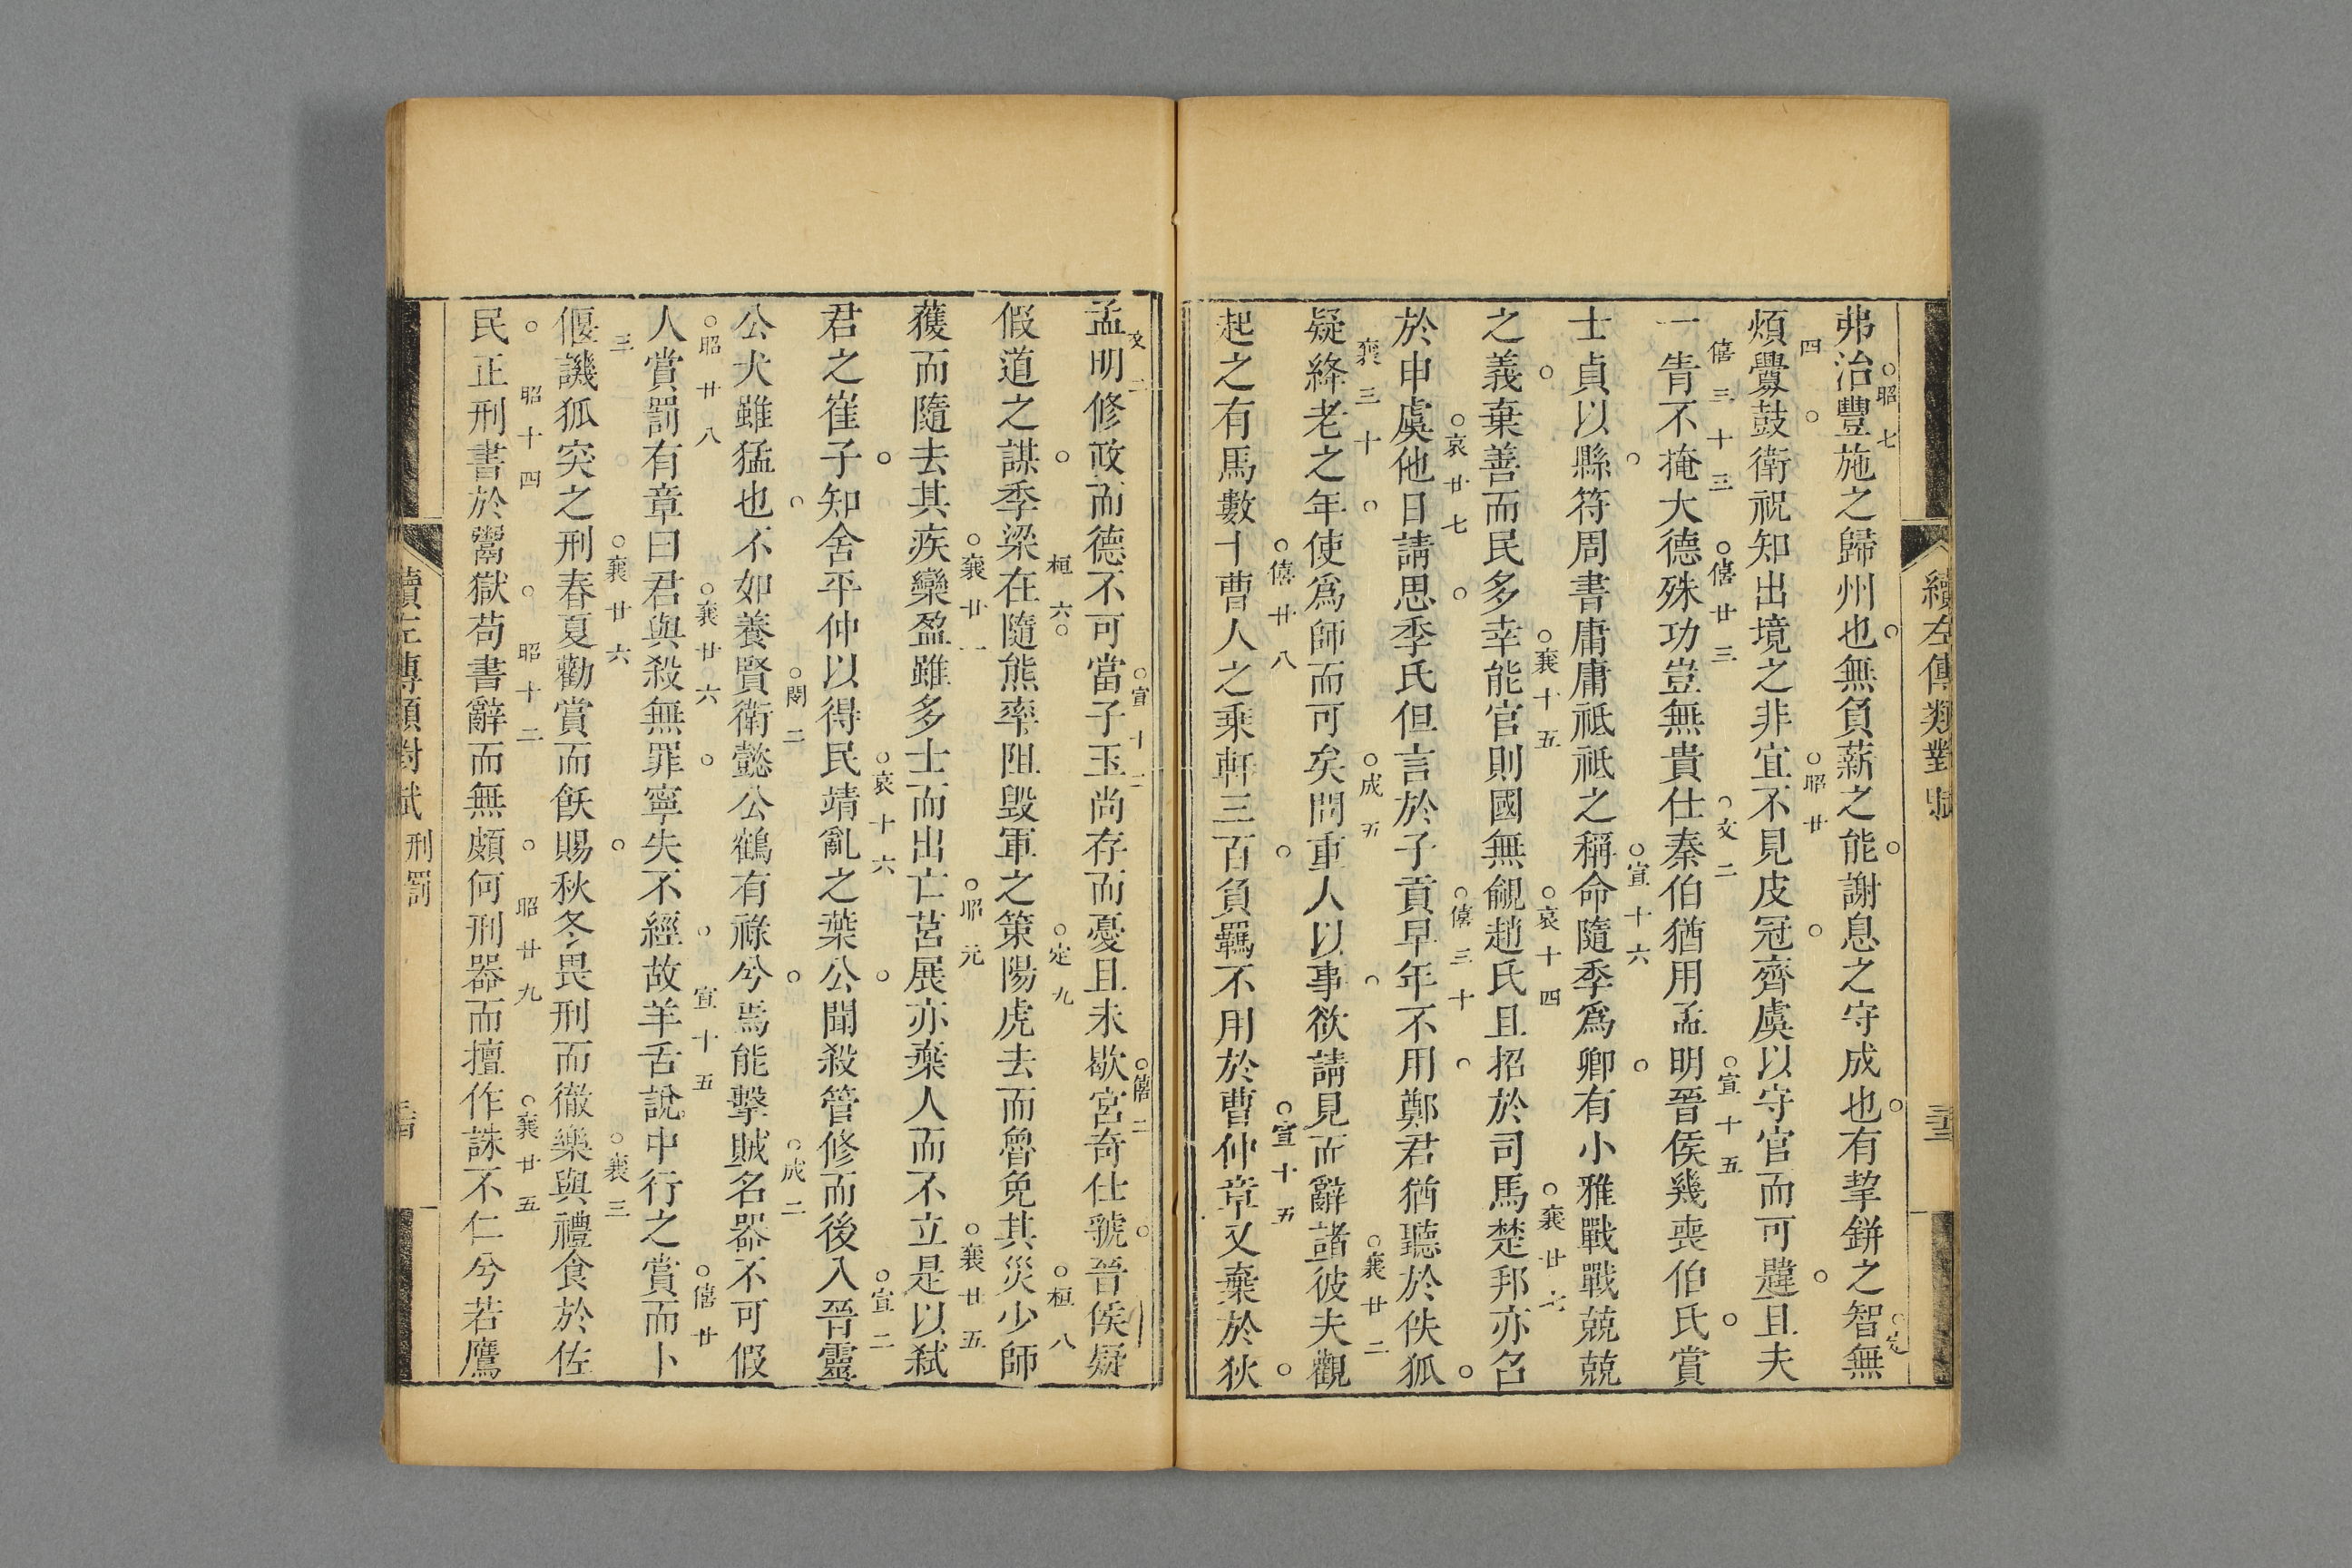 續左傳類對賦
弗治豐施之歸州也無負薪之能謝息之守成也有挈缾之智無
○昭七 ○ ○ ○ ○定
煩釁鼓衛祝知出境之非宜不見皮冠齊虞以守官而可韙且夫
四 ○ ○昭廿 ○ ○
一眚不掩大德殊功豈無貴仕秦伯猶用孟明晉侯幾喪伯氏賞
僖三十三 ○僖廿三 ○文二 ○宣十五 ○
士貞以縣符周書庸庸祗祗之稱命隨季爲卿有小雅戰戰兢兢
○ ○宣十六 ○
之義棄善而民多幸能官則國無覦趙氏且招於司馬楚邦亦召
○ ○襄十五 ○哀十四 ○襄廿七
於申虞他日請思季氏但言於子貢早年不用鄭君猶聽於佚狐
○哀廿七 ○ ○僖三十 ○ ○
疑絳老之年使爲師而可矣問重人以事欲請見而辭諸彼夫觀
襄三十 ○ ○成五 ○ ○襄廿二
起之有馬數十曹人之乘軒三百負羈不用於曹仲章又棄於狄
○僖廿八 ○ ○宣十五 ○
孟明修政而德不可當子玉尚存而憂且未歇宮奇仕虢晉侯疑
文二 ○宣十二 ○僖二 ○
假道之謀季梁在隨熊率阻毀軍之策陽虎去而魯免其災少師
○ 桓六○ ○定九 ○桓八
獲而隨去其疾欒盈雖多士而出亡莒展亦棄人而不立是以弑
○襄廿一 ○昭元 ○襄廿五
君之崔子知舍平仲以得民靖亂之葉公聞殺管修而後入晉靈
○ ○哀十六 ○ ○宣二
公犬雖猛也不如養賢衛懿公鶴有祿兮焉能擊賊名器不可假
○ ○閔二 ○ ○成二
人賞罰有章曰君與殺無罪寧失不經故羊舌說中行之賞而卜
○昭廿八 ○襄廿六 ○ ○宣十五 ○僖廿
偃譏狐突之刑春夏勸賞而飫賜秋冬畏刑而徹樂與禮食於佐
三 ○襄廿六 ○ ○襄三
民正刑書於鬻獄苟書辭而無頗何刑器而擅作誅不仁兮若鷹
○ 昭十四 ○ 昭十二 ○ 昭廿九 ○襄廿五
續左傳類對賦 刑罰